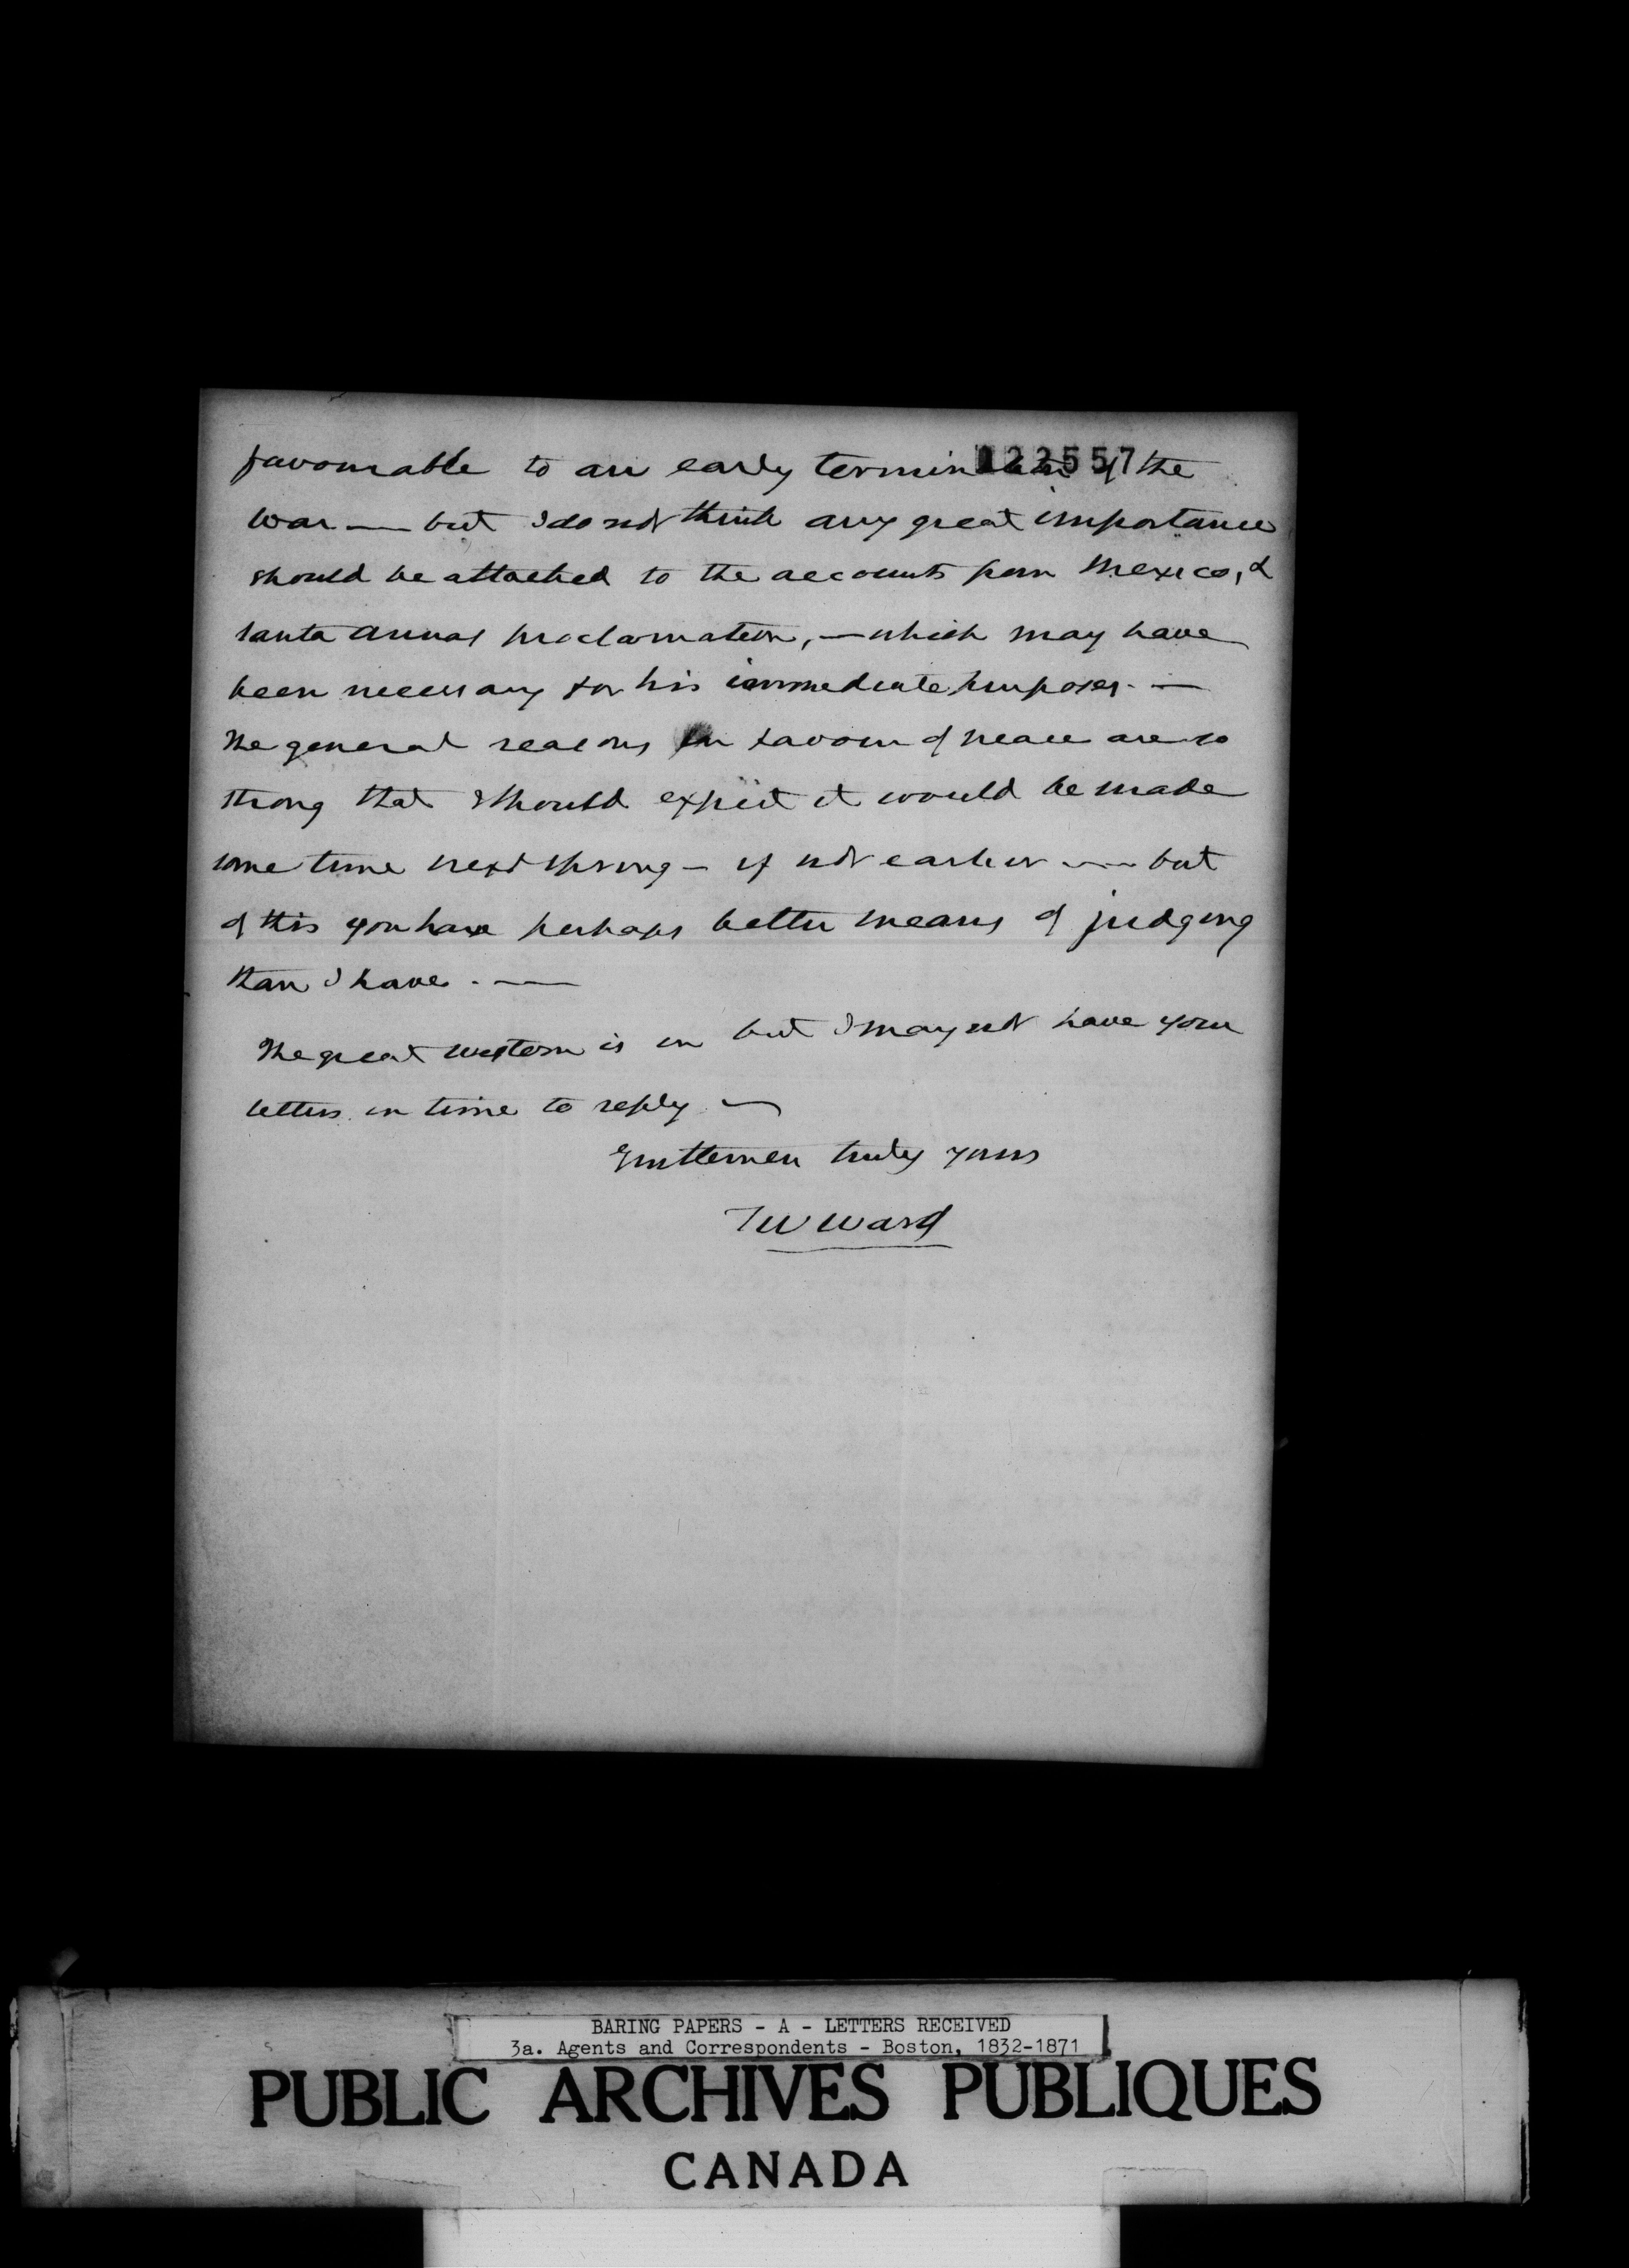 122557
favourable to an early termination of the
war — but I do not think any great importance
should be attached to the accounts from Mexico, &
Santa Annas proclamation, — which may have
been necessary for his immediate purposes. —
The general reasons in favour of peace are so
strong that I should expect it would be made
some time next spring — if not earlier — but
of this you have perhaps better means of judging
than I have. —
The great western is in but I may not have your
letters in time to reply —
Gentlemen truly yours
TW Ward
BARING PAPERS - A - LETTERS RECEIVED
3a. Agents and Correspondents - Boston, 1832-1871
PUBLIC ARCHIVES PUBLIQUES
CANADA